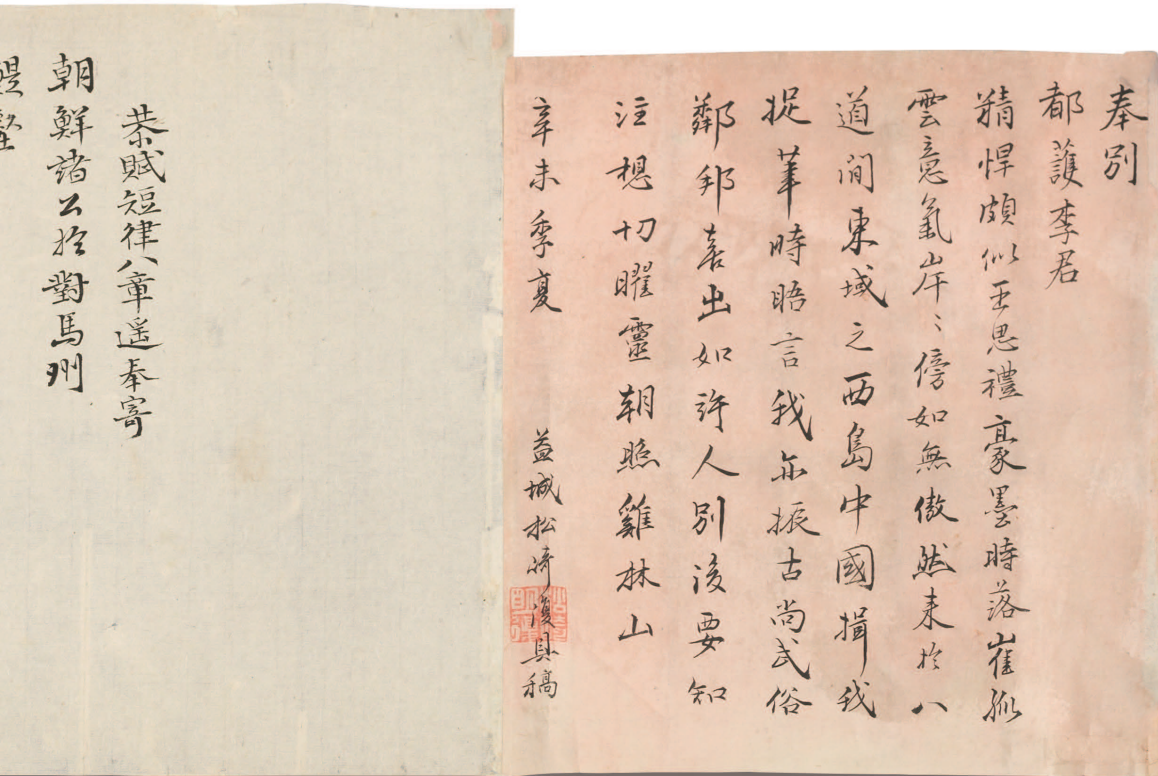 奉別
都護李君
精悍頗似王思禮豪墨時落崔孤
雲意氣岸〻傍如無傲然来於八
道間東域之西島中國揖我
捉筆時晤言我亦振古尚武俗
鄰邦喜出如許人別後要知
注想切曜靈朝照雞林山
辛未季夏
益城松崎復具稿
恭賦短律八章遥奉寄
朝鮮諸公於對馬州